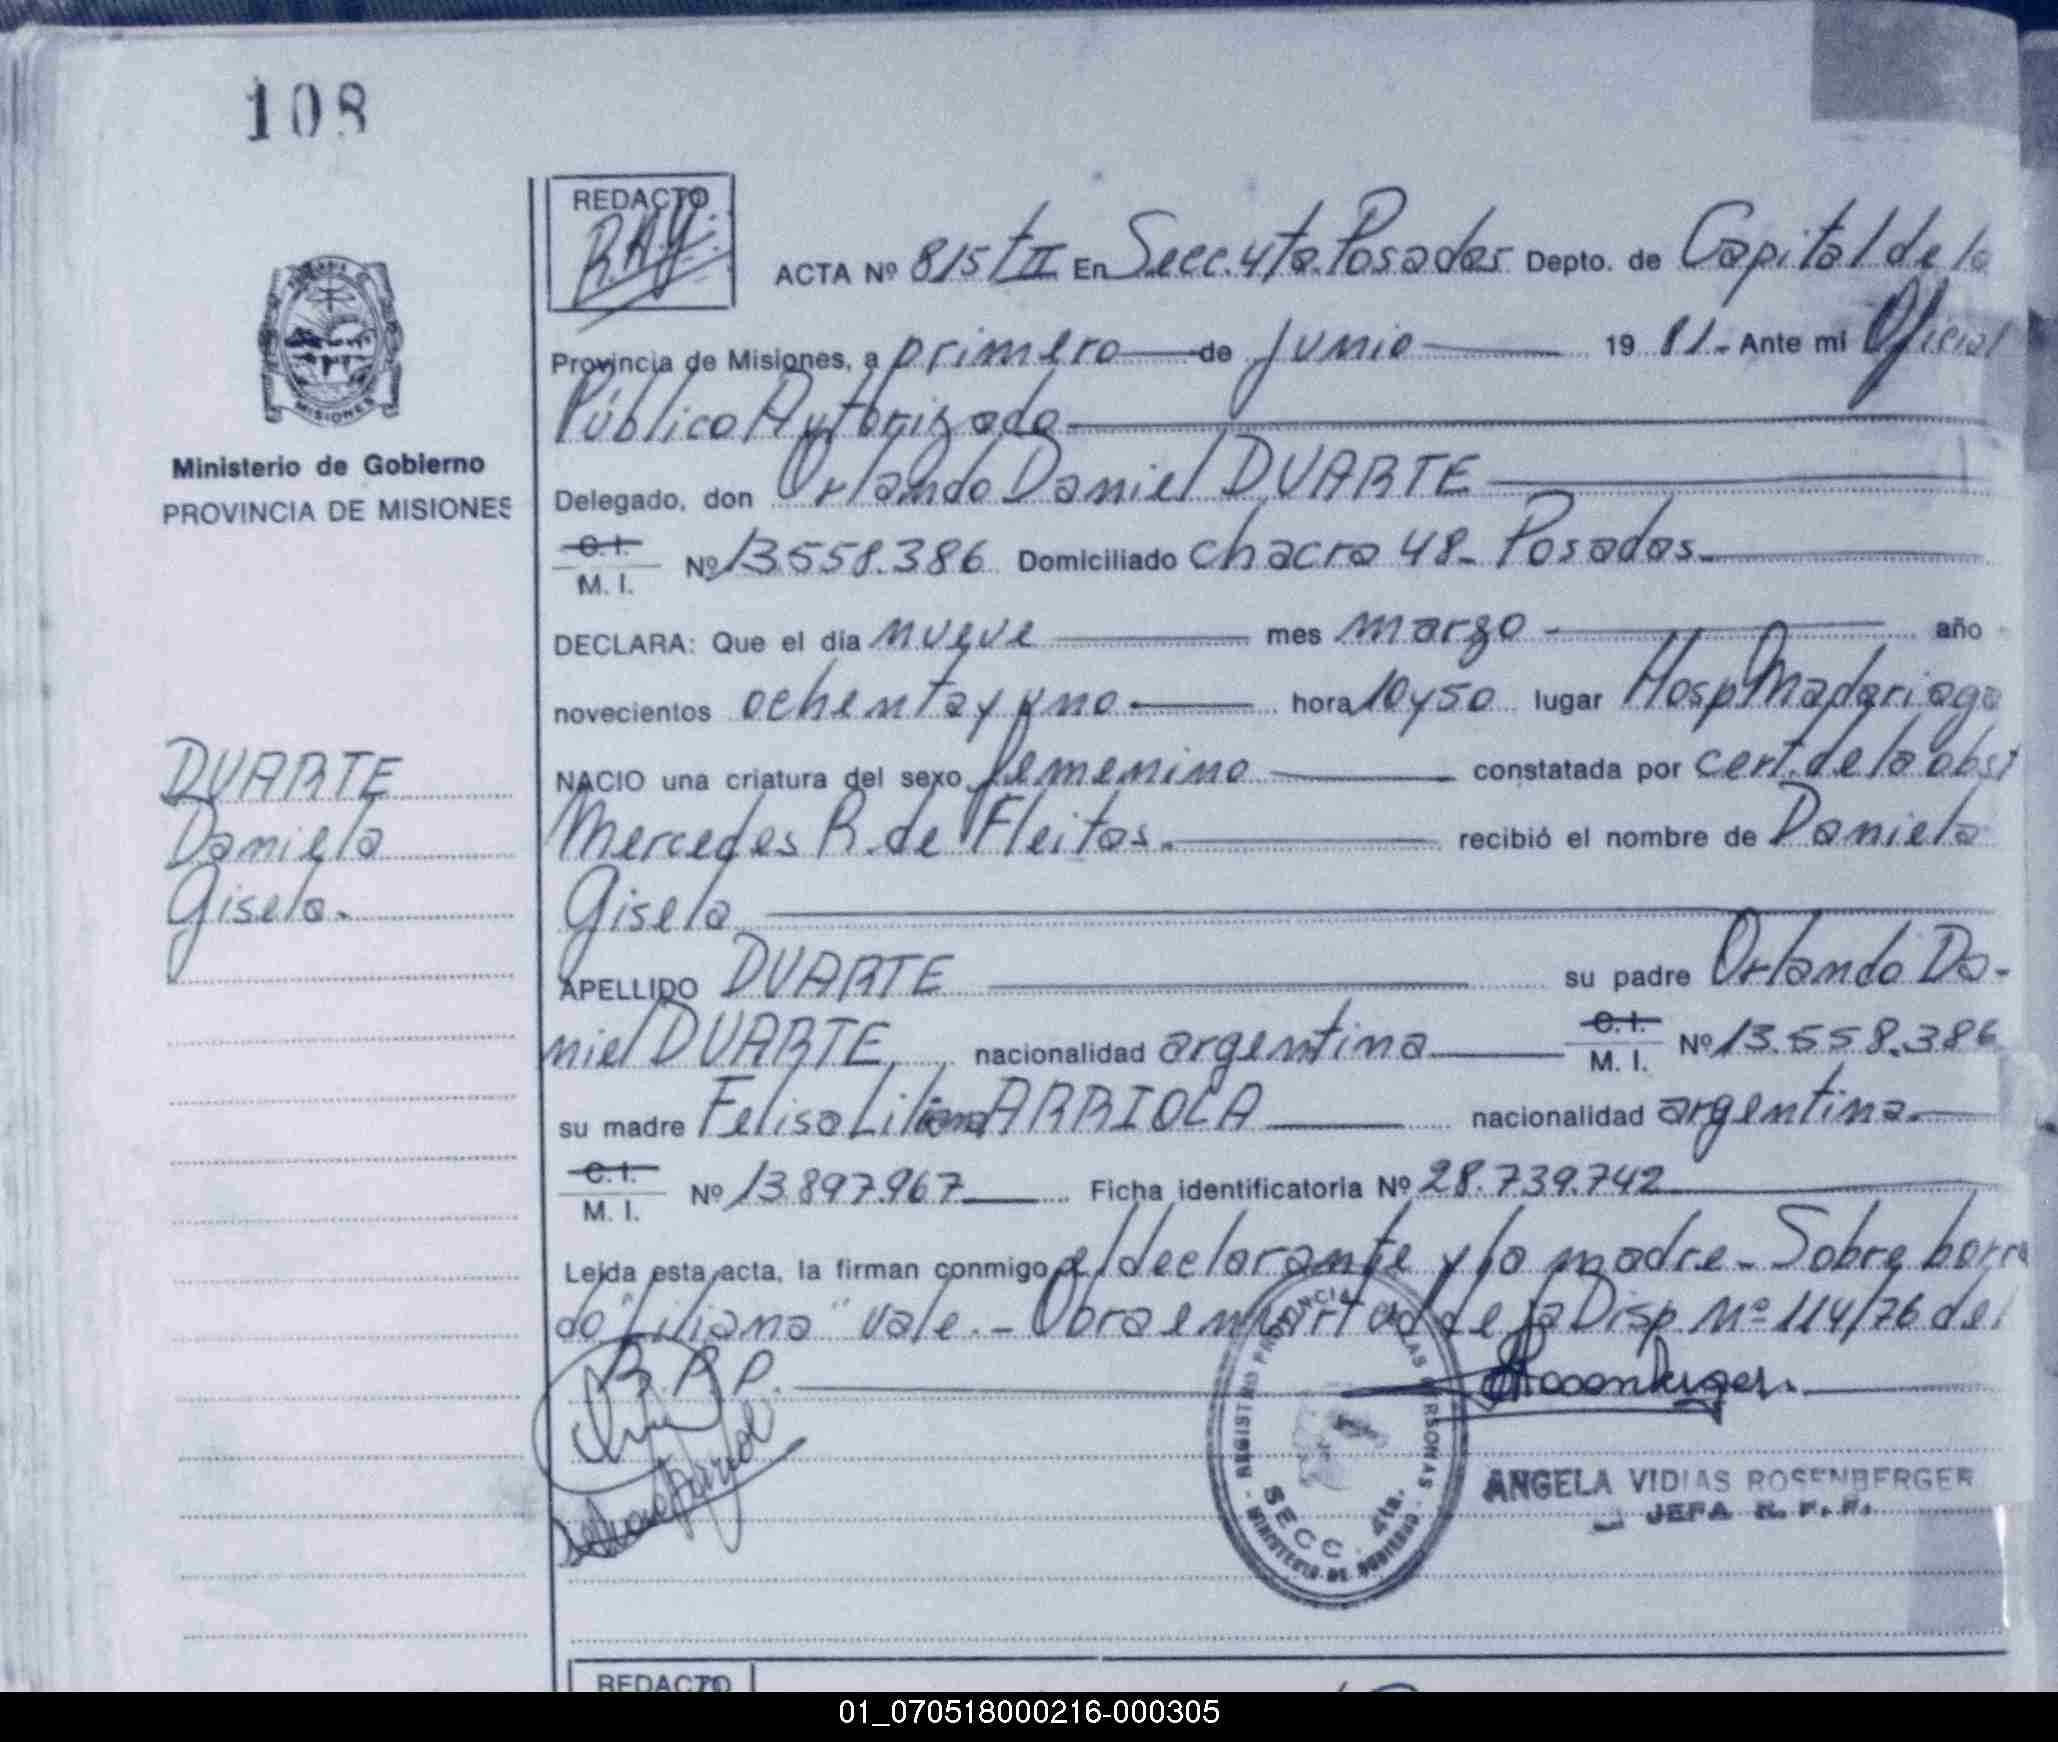 108
REDACTO
R.A.Y.
ACTA Nº 815 tII En Secc. 4ta. Posadas Depto. de Capital de la
Provincia de Misiones, a primero de junio 19 81.- Ante mi Oficial
Público Autorizado
Delegado, don Orlando Daniel DUARTE
C. I.
M. I. Nº 13.558.386 Domiciliado chacra 48- Posadas.
DECLARA: Que el día nueve mes marzo - año
novecientos ochenta y uno hora 10 y 50 lugar Hosp Madariaga
NACIO una criatura del sexo femenino constatada por cert. de la obst
Mercedes R. de Fleitas. recibió el nombre de Daniela
Gisela
APELLIDO DUARTE su padre Orlando Da-
niel DUARTE nacionalidad argentina C. I. M. I. Nº 13.558.386
su madre Felisa Liliana ARRIOLA nacionalidad argentina.
C. I.
M. I. Nº 13.897.967 Ficha identificatoria Nº 28.739.742
Leída esta acta, la firman conmigo el declarante y la madre.- Sobre borra
do "liliana" vale.- Obra en virtud de la Disp. Nº 114/76 del
R.P.P.
REGISTRO PROVINCIAL DE LAS PERSONAS
SECC. 4ta.
MINISTERIO DE GOBIERNO
ANGELA VIDIAS ROSENBERGER
JEFA R. P. P.
MISIONES
Ministerio de Gobierno
PROVINCIA DE MISIONES
DUARTE
Daniela
Gisela.
REDACTO
01_070518000216-000305